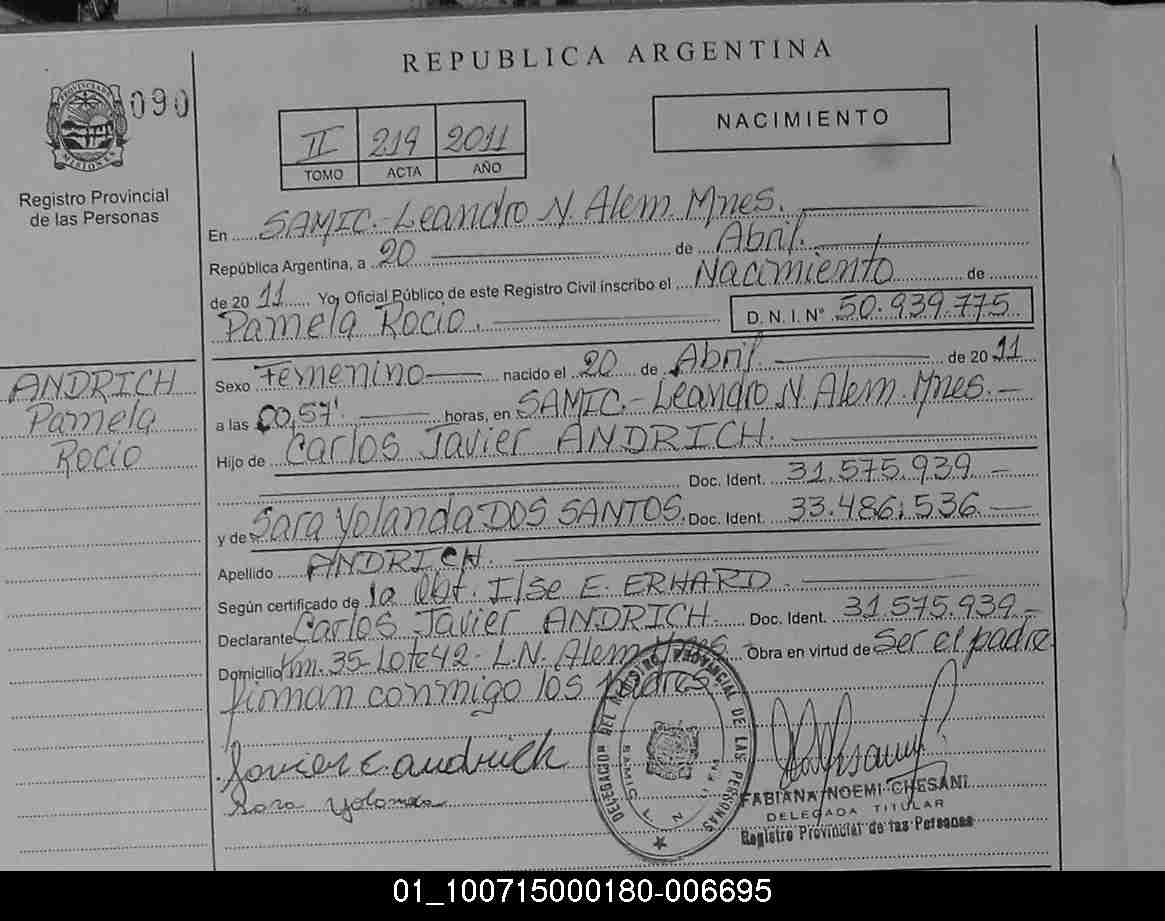 REPUBLICA ARGENTINA
090
PROVINCIA DE MISIONES
Registro Provincial
de las Personas
II 219 2011
TOMO ACTA AÑO
NACIMIENTO
En SAMIC.-Leandro N. Alem. Mnes.
República Argentina, a 20 de Abril.
de 2011 Yo, Oficial Público de este Registro Civil inscribo el Nacimiento de
Pamela Rocio. D. N. I. Nº 50.939.775
ANDRICH
Pamela
Rocio
Sexo Femenino nacido el 20 de Abril. de 2011
a las 00,57' horas, en SAMIC.-Leandro N. Alem. Mnes.-
Hijo de Carlos Javier ANDRICH.
Doc. Ident. 31.575.939 -
y de Sara Yolanda DOS SANTOS. Doc. Ident. 33.486.536 -
Apellido ANDRICH.
Según certificado de la Obt. Ilse E. ERHARD.
Declarante Carlos Javier ANDRICH. Doc. Ident. 31.575.939.-
Domicilio Km. 35-Lote 42- L.N. Alem Mnes. Obra en virtud de Ser el padre.
firman conmigo los Padres.
Javier C andrich
Sara Yolanda
DELEGACION DEL REGISTRO PROVINCIAL DE LAS PERSONAS
FABIANA NOEMI CHESANI
DELEGADA TITULAR
Registro Provincial de las Personas
01_100715000180-006695